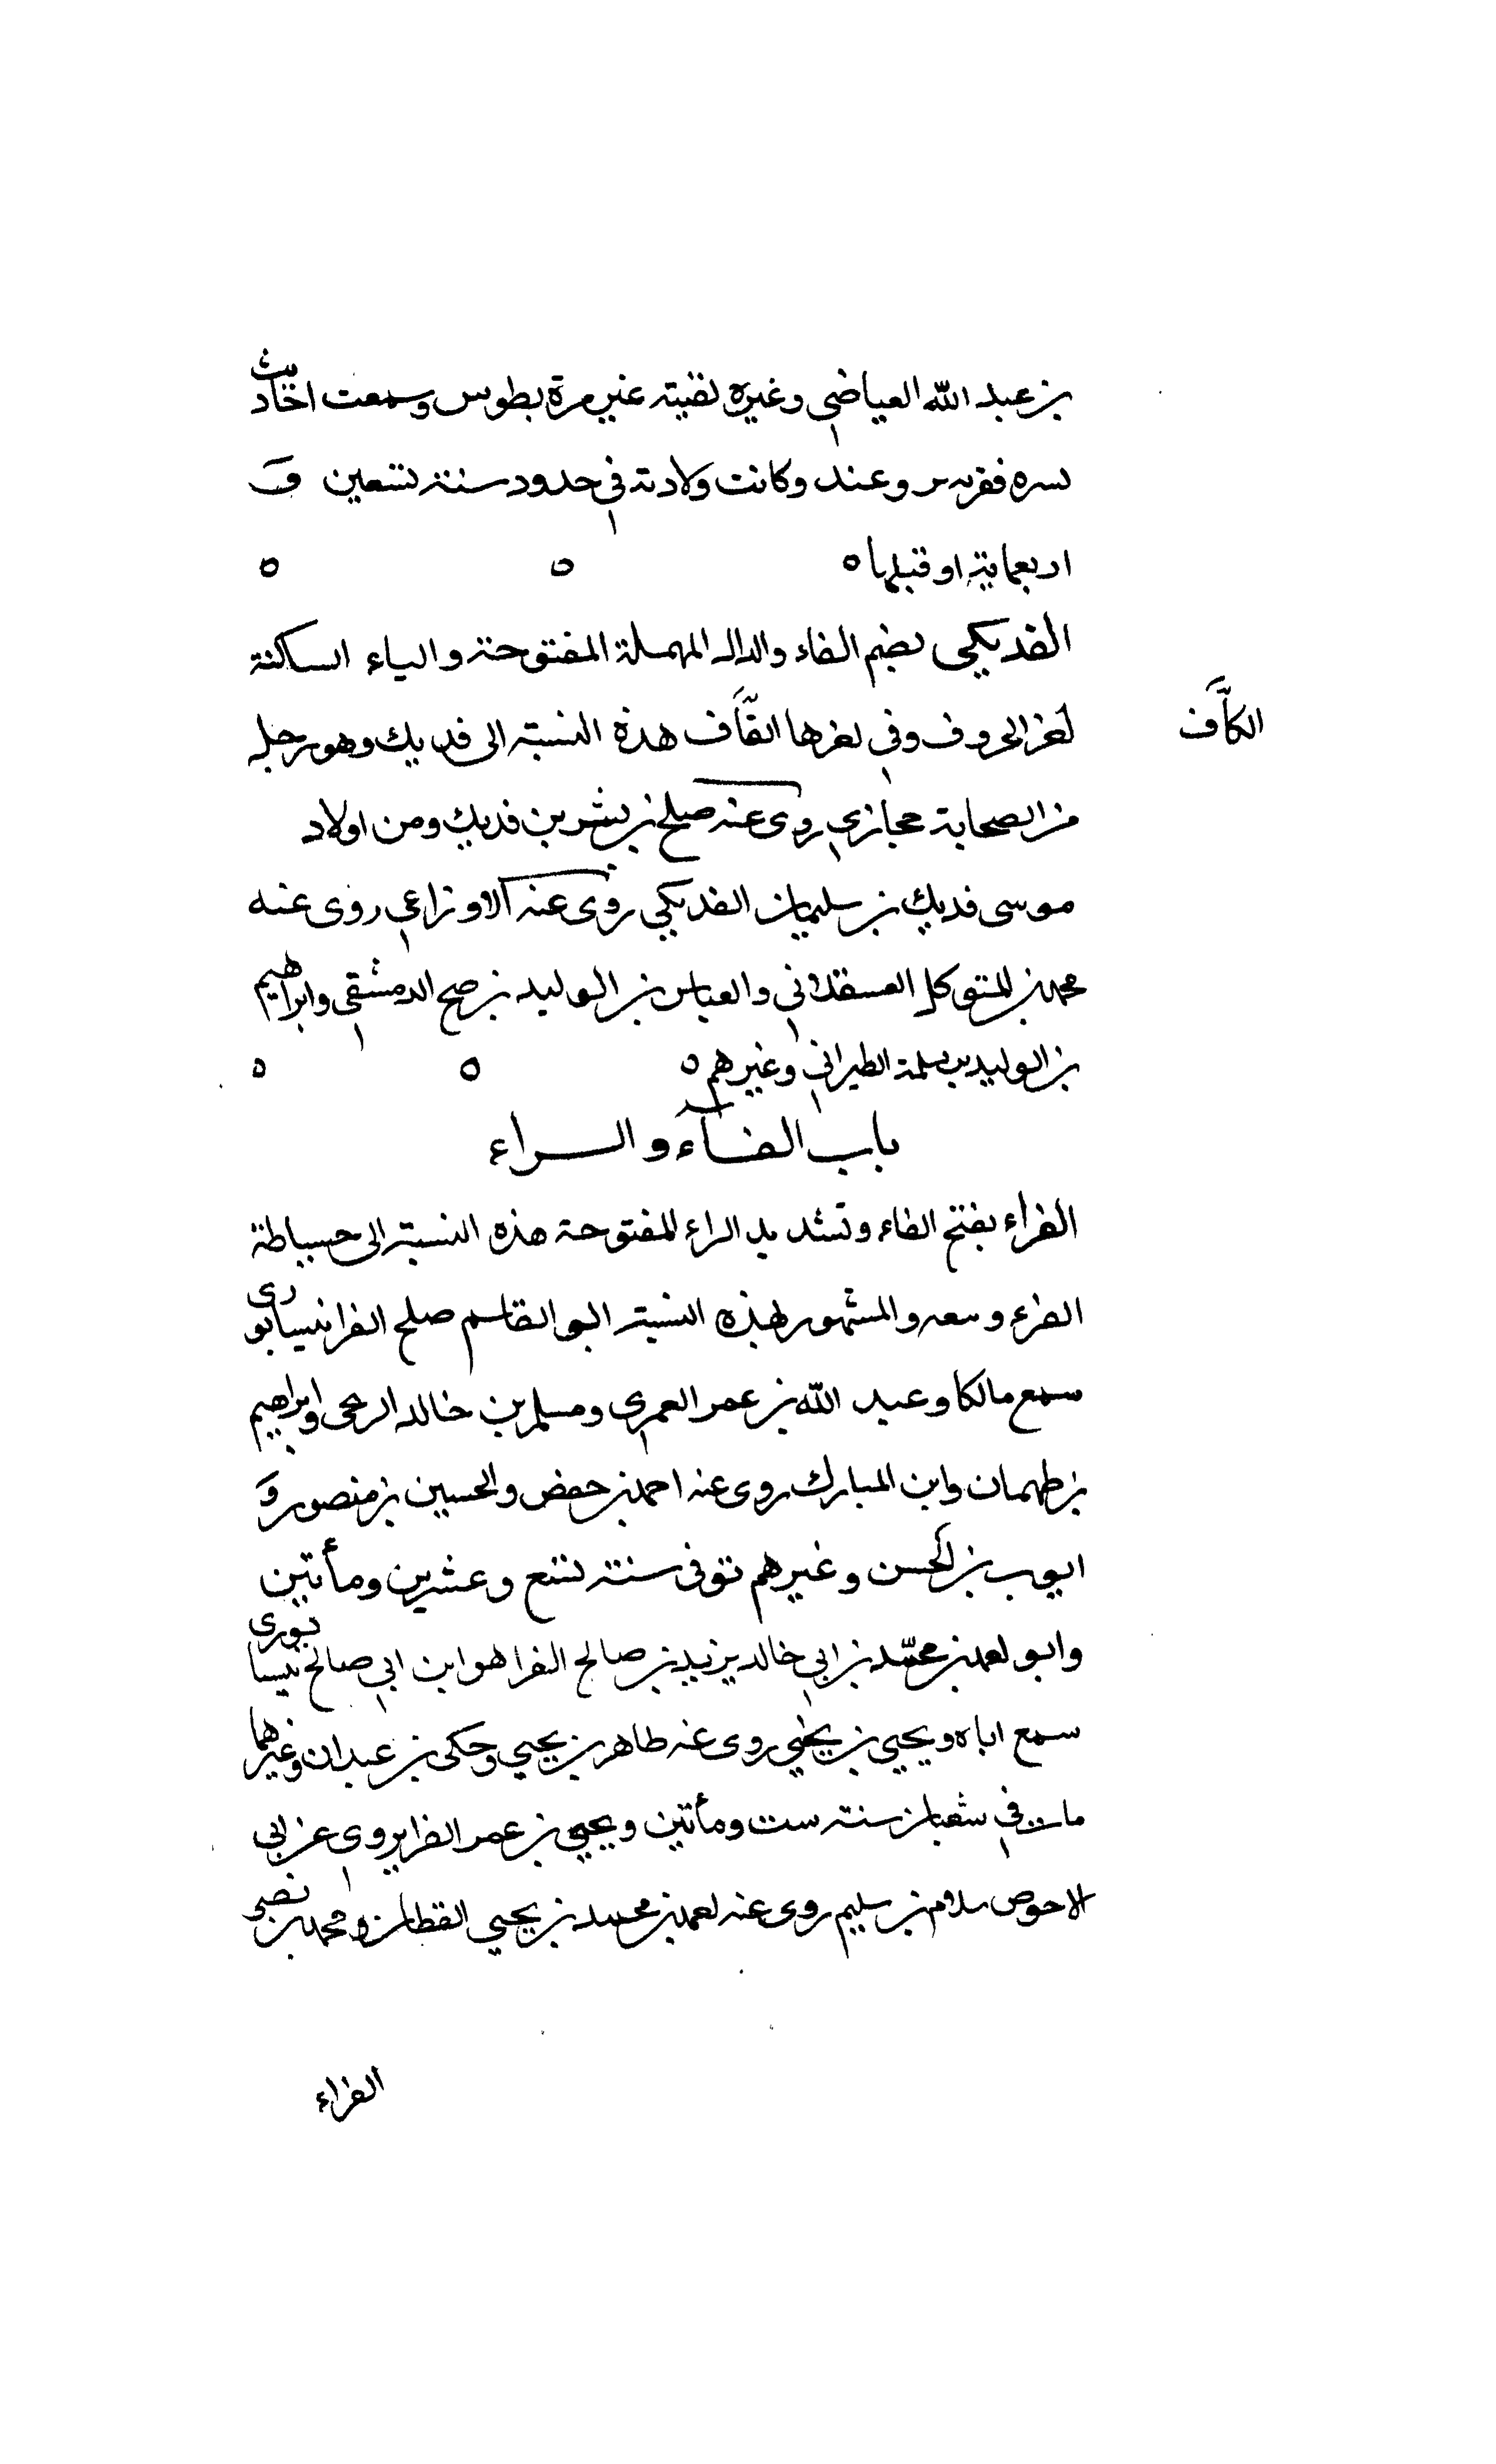 بن عبد الله العياضي وغيره لقيته غير مرة بطوس وسمعت احاديث
وكانت ولادته في حدود سنة تسعين و
اربعماية او قبلها ٥ ٥ ٥
الفديكي بضم الفاء والدال المهملة المفتوحة والياء الساكنة
الحروف وفي اخرها القاف هذه النسبة الى فديك وهو رجل
الكاف
من الصحابة حجازي روى عنه صلح بن بشر بن فديك ومن اولاد
موسى فديك بن سليمان الفديكي روى عنه الاوزاعي روى عنه
محمد بن المتوكل العسقلاني والعباس بن الوليد بن صبح الدمشقي وابراهيم
بن الوليد بن سلمة الطبراني وغيرهم ٥ ٥ ٥
باب الفاء والراء
الفراء بفتح الفاء وتشديد الراء المفتوحة هذه النسبة الى خياطة
الفرء والمشهور بهذه النسبة ابو القاسم صلح الفرا نيسابورى
سمع مالكا وعبد الله بن عمر العمرى ومسلم بن خالد الزنجى وابراهيم
بن طهمان وابن المبارك روى عنه احمد بن حفص والحسين بن منصور و
ايوب بن الحسن وغيرهم توفى سنة تسع وعشرين ومأتين
وابو احمد بن محمد بن ابي خالد يزيد بن صالح الفرا هو ابن ابي صالح نيسابورى
سمع اباه ويحيي بن يحيي روى عنه طاهر بن يحيي ومكى بن عبدان وغيرهما
مات في شعبان سنة ست ومأتين ويحيي بن عمر الفرا يروى عن ابي
الاحوص سلام بن سليم روى عنه احمد بن محمد بن يحيي القطان ومحمد بن نصر
الفراء